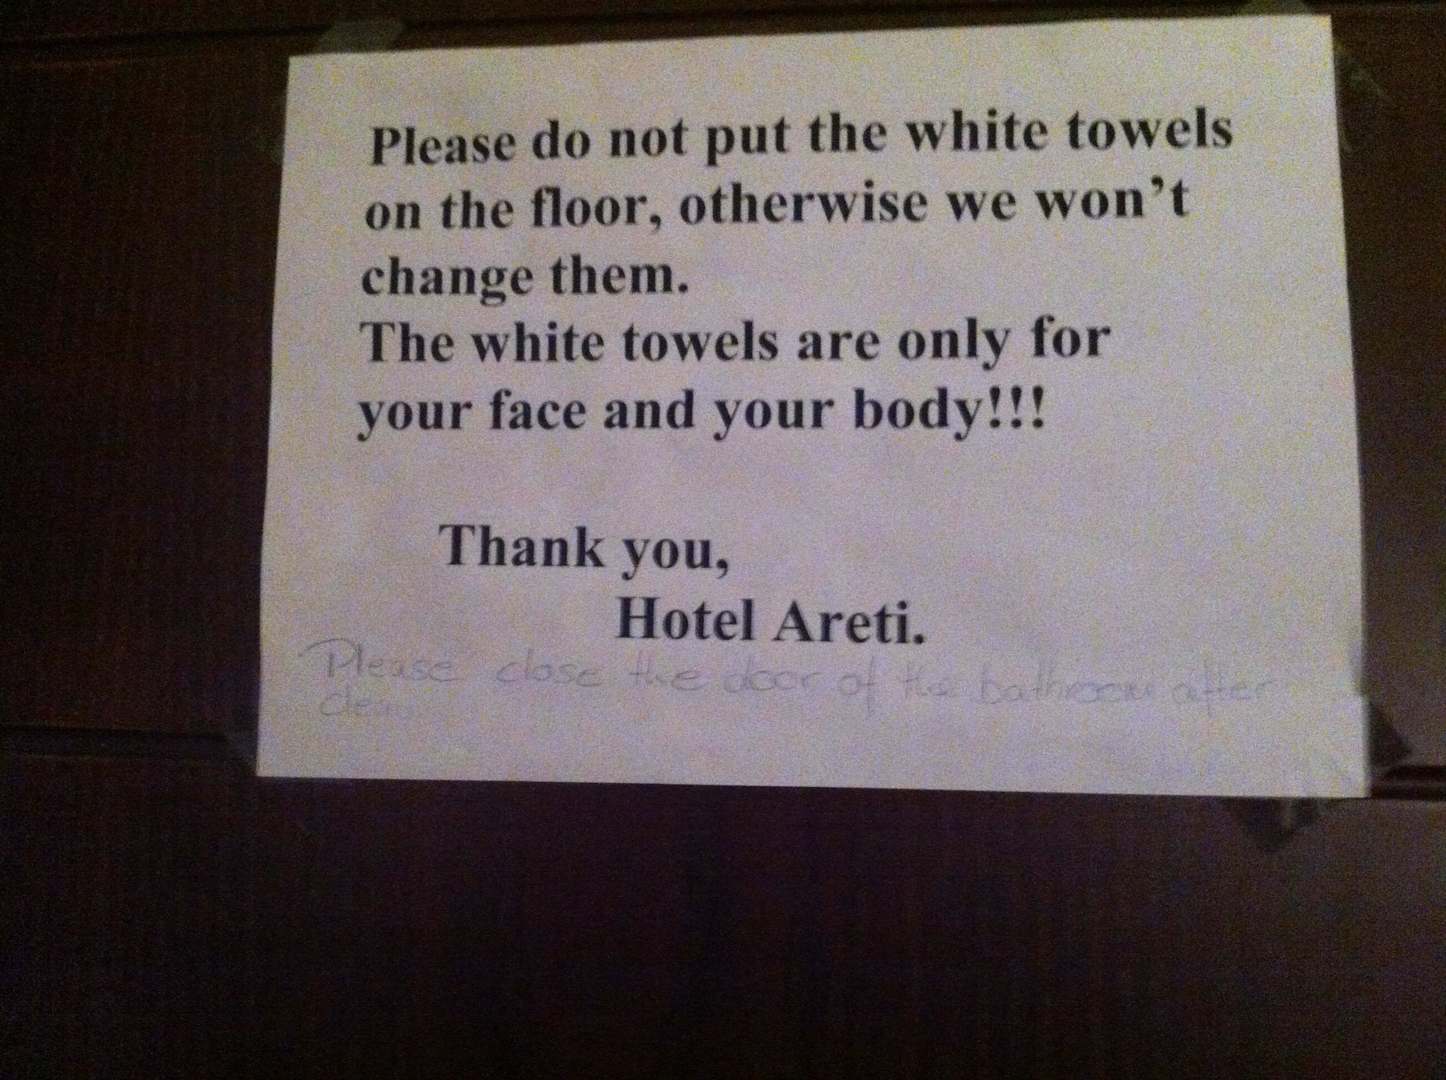 Please do not put the white towels
on the floor, otherwise we won't
change them.
The white towels are only for
your face and your body!!!
Thank you,
Hotel Areti.
Please close the door of the bathroom after